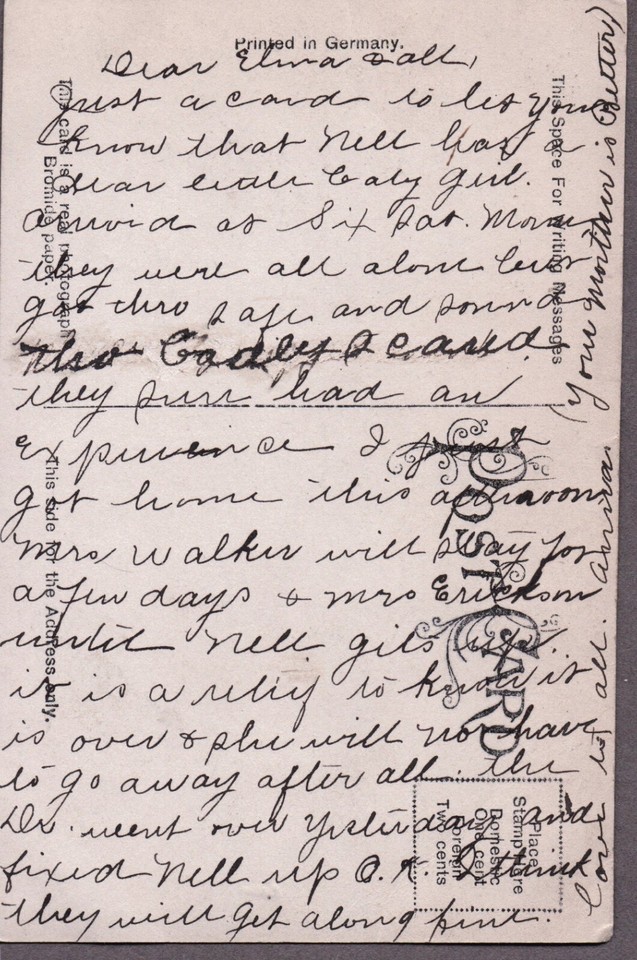 Printed in Germany.
Dear Elma & all,
Just a card to let you
know that Nell has a
dear little baby girl.
arrivid at Six Sat. Morn
they were all alone but
got thro safe and sound
tho badley scared
they sure had an
experience I just
got home this afternoon
Mrs Walker will stay for
a few days & Mrs Erickson
until Nell gits up.
it is a relief to know it
is over & she will not have
to go away after all. the
Dr. went over yesterday and
fixed Nell up O.K. I think
they will get along fine.
Love to all.
(Your Mother is Better)
This card is a real photograph
Bromide paper.
This Space For Writing Messages
This side for the Address only.
POST CARD
Place
Stamp Here
Domestic
One cent
Foreign
Two cents